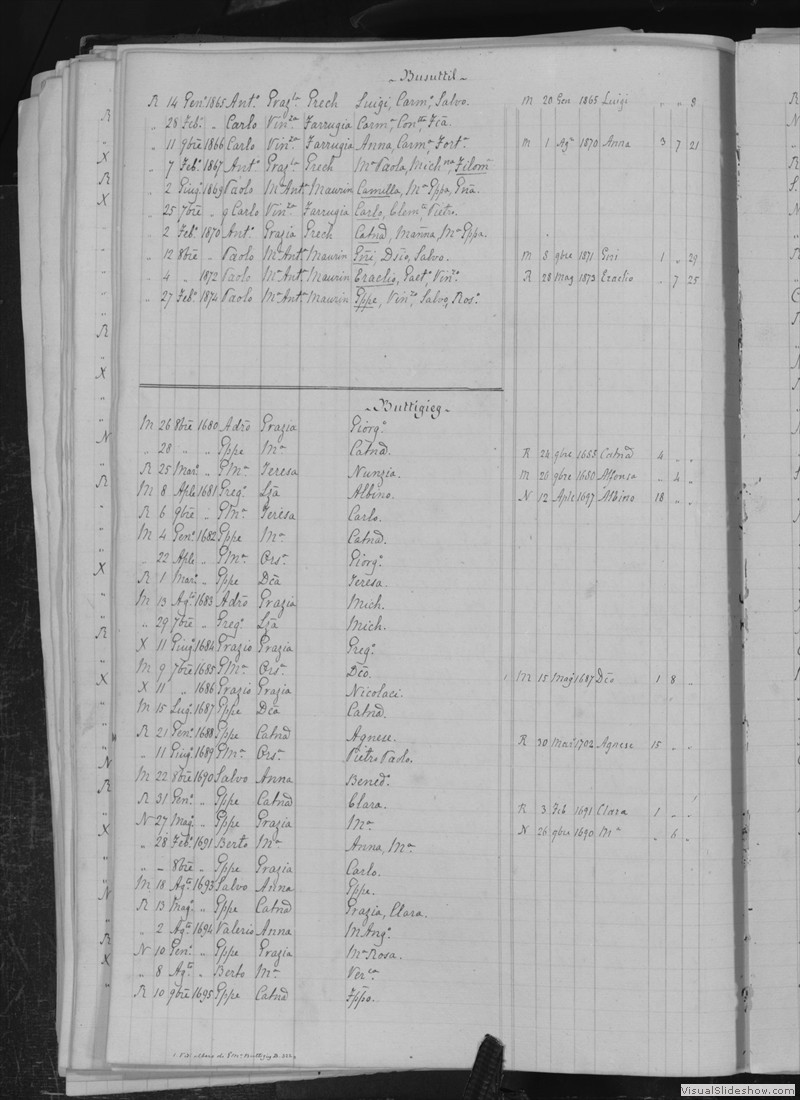 - Busuttil -
R 14 Gen.º 1865 Ant.º Graz.la Grech Luigi, Carm.º, Salvo. M 20 Gen 1865 Luigi " " 8
" 28 Feb.º " Carlo Vin.za Farrugia Carm.ª
" 11 9bre 1866 Carlo Vin.za Farrugia Anna, Carm.ª Fort.ª M 1 Ag.º 1870 Anna 3 7 21
" 7 Feb.º 1867 Ant.º Graz.la Grech M.ª Paola, Filom.ª
" 2 Giug.º 1869 Paolo M.ª Ant.ª Maurin Camilla, M.ª Gppa,
" 25 7bre " Carlo Vin.za Farrugia Carlo, Clem.te Pietro.
" 2 Feb.º 1870 Ant.º Grazia Grech Catnd, Marina, M.ª Gppa.
" 12 8bre " Paolo M.ª Ant.ª Maurin Gnri, Dnio, Salvo. M 8 9bre 1871 Gnri 1 " 29
" 4 " 1872 Paolo M.ª Ant.ª Maurin Eraclio, Gaet.º, Vin.º R 28 Mag 1873 Eraclio " 7 25
" 27 Feb.º 1874 Paolo M.ª Ant.ª Maurin Gppe, Vin.zo, Salvo, Ros.º
- Buttigieg -
M 26 8bre 1680 Adrõ Grazia Giorg.º
" 28 " " Gppe M.ª Catnd. R 24 9bre 1685 Catnd 4 " "
R 25 Mar.º " GMa Teresa Nunzia. M 26 9bre 1680 Alfonsa " 4 "
M 8 Aple 1681 Greg.º Lza Albino. N 12 Aple 1697 Albino 18 " "
R 6 9bre " GMa Teresa Carlo.
M 4 Gen.º 1682 Gppe M.ª Catnd.
" 22 Aple " GMa Ors.ª Giorg.º
R 1 Mar.º " Gppe Dca Teresa.
M 13 Ag.º 1683 Adrõ Grazia Mich.
" 29 7bre " Greg.º Lza Mich.
X 11 Giug.º 1684 Grazio Grazia Greg.º
M 9 7bre 1685 GMa Ors.ª Dco. 1 M 15 Mag 1687 Dco 1 8 "
X 11 " 1686 Grazio Grazia Nicolaci.
M 15 Lug.º 1687 Gppe Dca Catnd.
R 21 Gen.º 1688 Gppe Catnd Agnese. R 30 Mar 1702 Agnese 15 " "
" 11 Giug.º 1689 GMa Ors.ª Pietro Paolo.
M 22 8bre 1690 Salvo Anna Bened.º
R 31 Gen.º " Gppe Catnd Clara. R 3 Feb 1691 Clara 1 " "
N 27 Mag.º " Gppe Grazia M.ª N 26 9bre 1690 M.ª " 6 "
" 28 Feb.º 1691 Berto M.ª Anna, M.ª
" – 8bre " Gppe Grazia Carlo.
M 18 Ag.º 1693 Salvo Anna Gppe.
R 13 Mag.º " Gppe Catnd Grazia, Clara.
" 2 Ag.º 1694 Valerio Anna M Ang.º
N 10 Gen.º " Gppe Grazia M.ª Rosa.
" 8 Ag.º " Berto M.ª Ver.ca
R 10 9bre 1695 Gppe Catnd Fppo.
VisualSlideshow.com